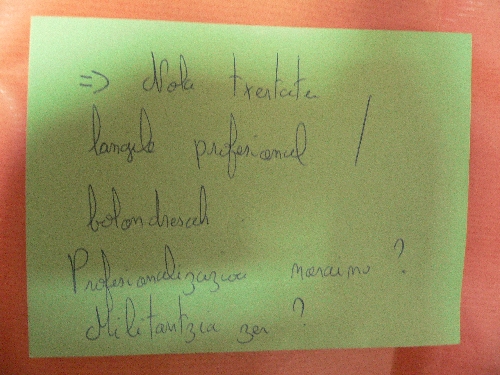 => Nola txertatu
langile profesional /
bolondresak
Profesionalizazioa noraino ?
Militantzia zer ?